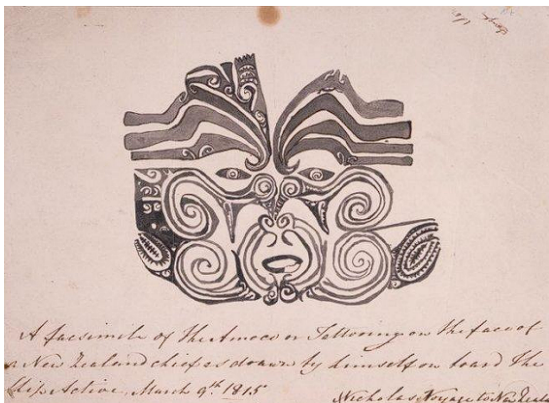 A facsimile of the Amoco or Tattooing on the face of
a New Zealand chief as drawn by himself on board the
Ship Active. March 9th 1815
Nicholas Voyage to New Zeala